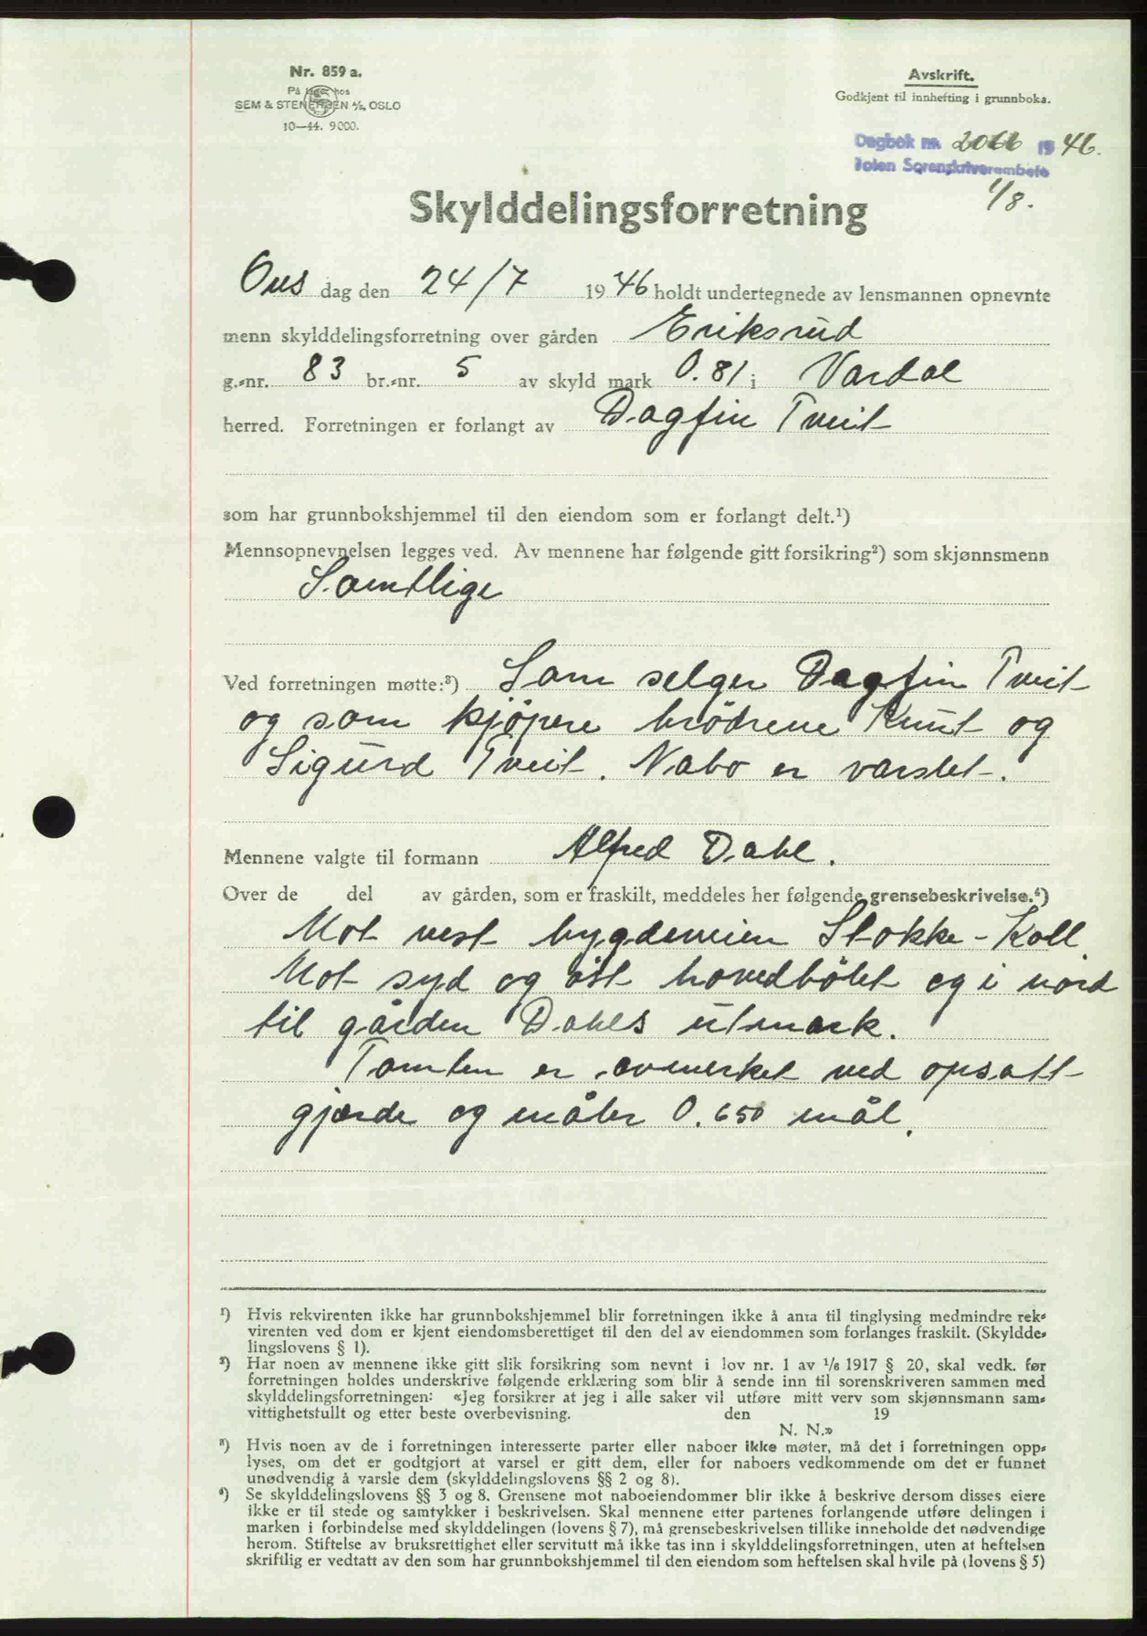 Nr. 859 a.
På lager hos
SEM & STENERSEN A/S, OSLO
10—44. 9000.
Avskrift.
Godkjent til innhefting i grunnboka.
Dagbok nr. 2066 1946.
Toten Sorenskriverembete
1/8.
Skylddelingsforretning
Ons dag den 24/7 1946 holdt undertegnede av lensmannen opnevnte
menn skylddelingsforretning over gården Eriksrud
g.-nr. 83 br.-nr. 5 av skyld mark 0.81 i Vardal
herred. Forretningen er forlangt av Dagfin Tveit
som har grunnbokshjemmel til den eiendom som er forlangt delt.¹)
Mennsopnevnelsen legges ved. Av mennene har følgende gitt forsikring²) som skjønnsmenn
Samtlige
Ved forretningen møtte:³) Som selger Dagfin Tveit
og som kjöpere brödrene Knut og
Sigurd Tveit. Nabo er varslet.
Mennene valgte til formann Alfred Dahl.
Over de del av gården, som er fraskilt, meddeles her følgende grensebeskrivelse.⁴)
Mot vest bygdeveien Stokke-Koll
Mot syd og öst hovedbölet og i nord
til gården Dahls utmark.
Tomten er avmerket ved opsatt
gjærde og måler 0.650 mål.
¹) Hvis rekvirenten ikke har grunnbokshjemmel blir forretningen ikke å anta til tinglysing medmindre rek-
virenten ved dom er kjent eiendomsberettiget til den del av eiendommen som forlanges fraskilt. (Skyldde-
lingslovens § 1).
²) Har noen av mennene ikke gitt slik forsikring som nevnt i lov nr. 1 av 1/6 1917 § 20, skal vedk. før
forretningen holdes underskrive følgende erklæring som blir å sende inn til sorenskriveren sammen med
skylddelingsforretningen: «Jeg forsikrer at jeg i alle saker vil utføre mitt verv som skjønnsmann sam-
vittighetsfullt og etter beste overbevisning. den 19
N. N.»
³) Hvis noen av de i forretningen interesserte parter eller naboer ikke møter, må det i forretningen opp-
lyses, om det er godtgjort at varsel er gitt dem, eller for naboers vedkommende om det er funnet
unødvendig å varsle dem (skylddelingslovens §§ 2 og 8).
⁴) Se skylddelingslovens §§ 3 og 8. Grensene mot naboeiendommer blir ikke å beskrive dersom disses eiere
ikke er til stede og samtykker i beskrivelsen. Skal mennene etter partenes forlangende utføre delingen i
marken i forbindelse med skylddelingen (lovens § 7), må grensebeskrivelsen tillike inneholde det nødvendige
herom. Stiftelse av bruksrettighet eller servitutt må ikke tas inn i skylddelingsforretningen, uten at heftelsen
skriftlig er vedtatt av den som har grunnbokshjemmel til den eiendom som heftelsen skal hvile på (lovens § 5)